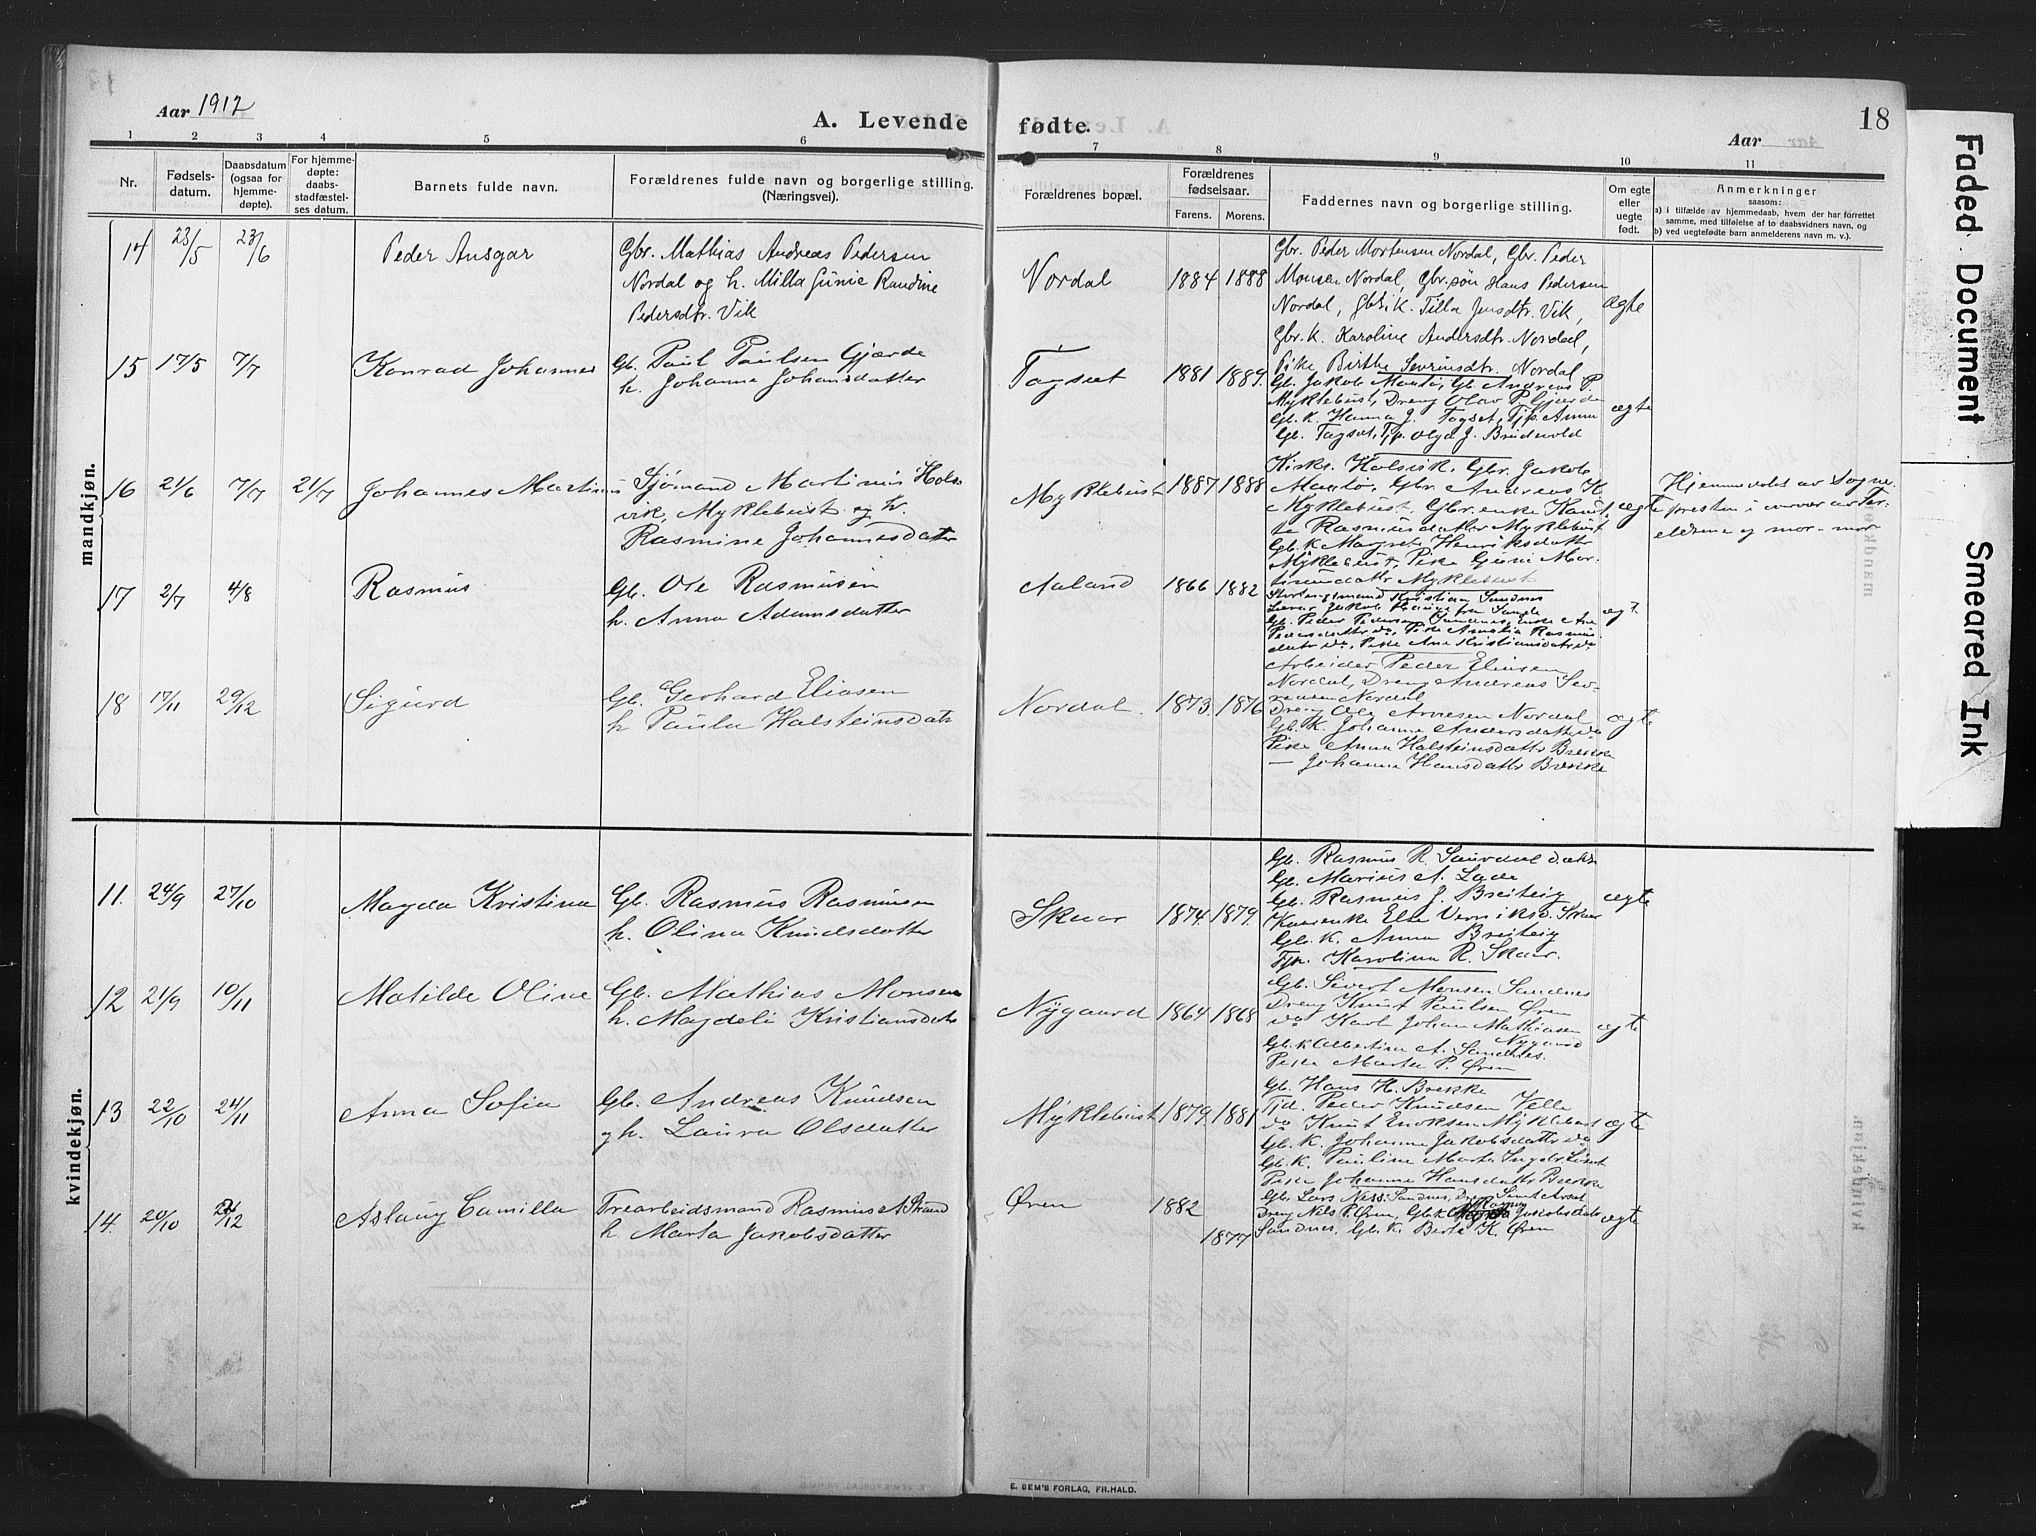 Aar 1912
A. Levende fødte.
Aar
18
1 2 3 4 5 6 7 8 9 10 11
Nr.
Fødsels-
datum.
Daabsdatum
(ogsaa for
hjemme-
døpte).
For hjemme-
døpte:
daabs-
stadfæstel-
ses datum.
Barnets fulde navn.
Forældrenes fulde navn og borgerlige stilling.
(Næringsvei).
Forældrenes bopæl.
Forældrenes
fødselsaar.
Farens. Morens.
Faddernes navn og borgerlige stilling.
Om egte
eller
uegte
født.
Anmerkninger
saasom:
a) i tilfælde av hjemmedaab, hvem der har forrettet
samme, med tilføielse af to daabsvidners navn, og
b) ved uegtefødte barn anmelderens navn m. v.).
mandkjøn.
14 23/5 23/6 Peder Ansgar
Gbr. Mathias Andreas Pedersen
Nordal og h. Milla Gunie Randine
Pedersdtr. Vik
Nordal 1884 1888
Gbr. Peder Mortensen Nordal, Gbr. Peder
Monsen Nordal, Gbr.søn Hans Pedersen
Nordal, Gbr.k. Tilla Jensdtr. Vik,
Gbr.k. Karoline Andersdtr. Nordal,
Pike Birthe Sevrinsdtr. Nordal
ægte
15 17/5 7/7 Konrad Johannes
Gb. Paul Paulsen Gjærde
h. Johanna Johansdatter
Tagset 1881 1889.
Gb. Jakob Maatø, Gb. Andreas P.
Myklebust, Dreng Olav P. Gjærde
Gb. K. Hanna J. Tagset, Tjp. Anna
Gb. Tagset, Tjp. Olga J.
ægte
16 21/6 7/7 21/7 Johannes Martinus
Sjømand Martinus Hols
vik, Myklebust og h.
Rasmine Johannesdatter
Myklebust 1887 1888
Kirks. Holsvik, Gbr. Jakob
Maatø, Gbr. Andreas K.
Myklebust, Gbr.enke Kanut
te Rasmusdatter Myklebust
Gb. K Margrete Henriksdatter
Myklebust, Pike Gunie Mar-
tinusdattr Myklebust
ægte
Hjemmedøbt av Sogne-
presten i nærvær av for-
ældrene og mor-mor
17 2/7 4/8 Rasmus
Gb. Ole Rasmusen
h. Anna Adamsdatter
Aaland 1866 1882
Stortingsmand Kristian Sandnes
Lærer Jakob Hauge fra Sande
Gb. Peder Pedersen Sandnes, Enke Ane
Pedersdattr do, Pike Amalia Rasmus-
dattr do, Pike Ane Kristiansdatr do
ægt.
18 17/11 29/12 Sigurd
Gb. Gerhard Eliasen
h Paula Halsteinsdatr
Nordal. 1873. 1876
Arbeider Peder Eliasen
Nordal, Dreng Andreas Sev-
rensen Nordal
Dreng Ole Arnesen Nordal
Gb. K. Johanna Andersdattr do
Pike Anna Halsteinsdattr Brekke
— Johanna Hansdattr Brekke
ægte
kvindekjøn.
11. 24/9 27/10 Magda Kristina
Gb. Rasmus Rasmusen
h. Olina Knudsdatter
Skaar 1874. 1879.
Gb. Rasmus R. Saurdal
Gb. Marius A. Lade
Gb. Rasmus J. Breiteig
Kaarenke Else Skaar
Gb. K. Anna Breiteig
Tjp. Karolina R. Skaar.
ægte
12 21/9 10/11 Matilde Oline
Gb. Mathias Monsen
h. Magdeli Kristiansdatr
Nygaard 1864 1868
Gb. Sivert Monsen Sandnes
Dreng Knut Paulsen Øren
do Karl Johan Mathiasen
Nygaard
Gb. K Albertina A. Sandnes.
Pike Marta P. Øren
ægte
13 22/10 24/11 Anna Sofia
Gb. Andreas Knudsen
og h. Laura Olsdatter
Myklebust 1879 1881
Gb. Hans H. Brekke
Tjd. Peder Knudsen Velle
do Knut Enoksen Myklebust
Gb. K. Johanna Jakobsdattr do
Gb. K. Pauline Marta
Pike Johanne Hansdattr Brekke
ægte
14. 20/10 /12 Aslaug Camilla
Træarbeidsmand Rasmus A Strand
h. Marta Jakobsdatter
Øren 1882
1877
Gb. Lars Sandnes, Dreng
Dreng Nils P. Øren, Gb. K. Jakobsdatr
Sandnes, Gb. K. Berte K. Øren
ægte
E. SEM'S FORLAG, FR.HALD.
Faded Document
Smeared Ink